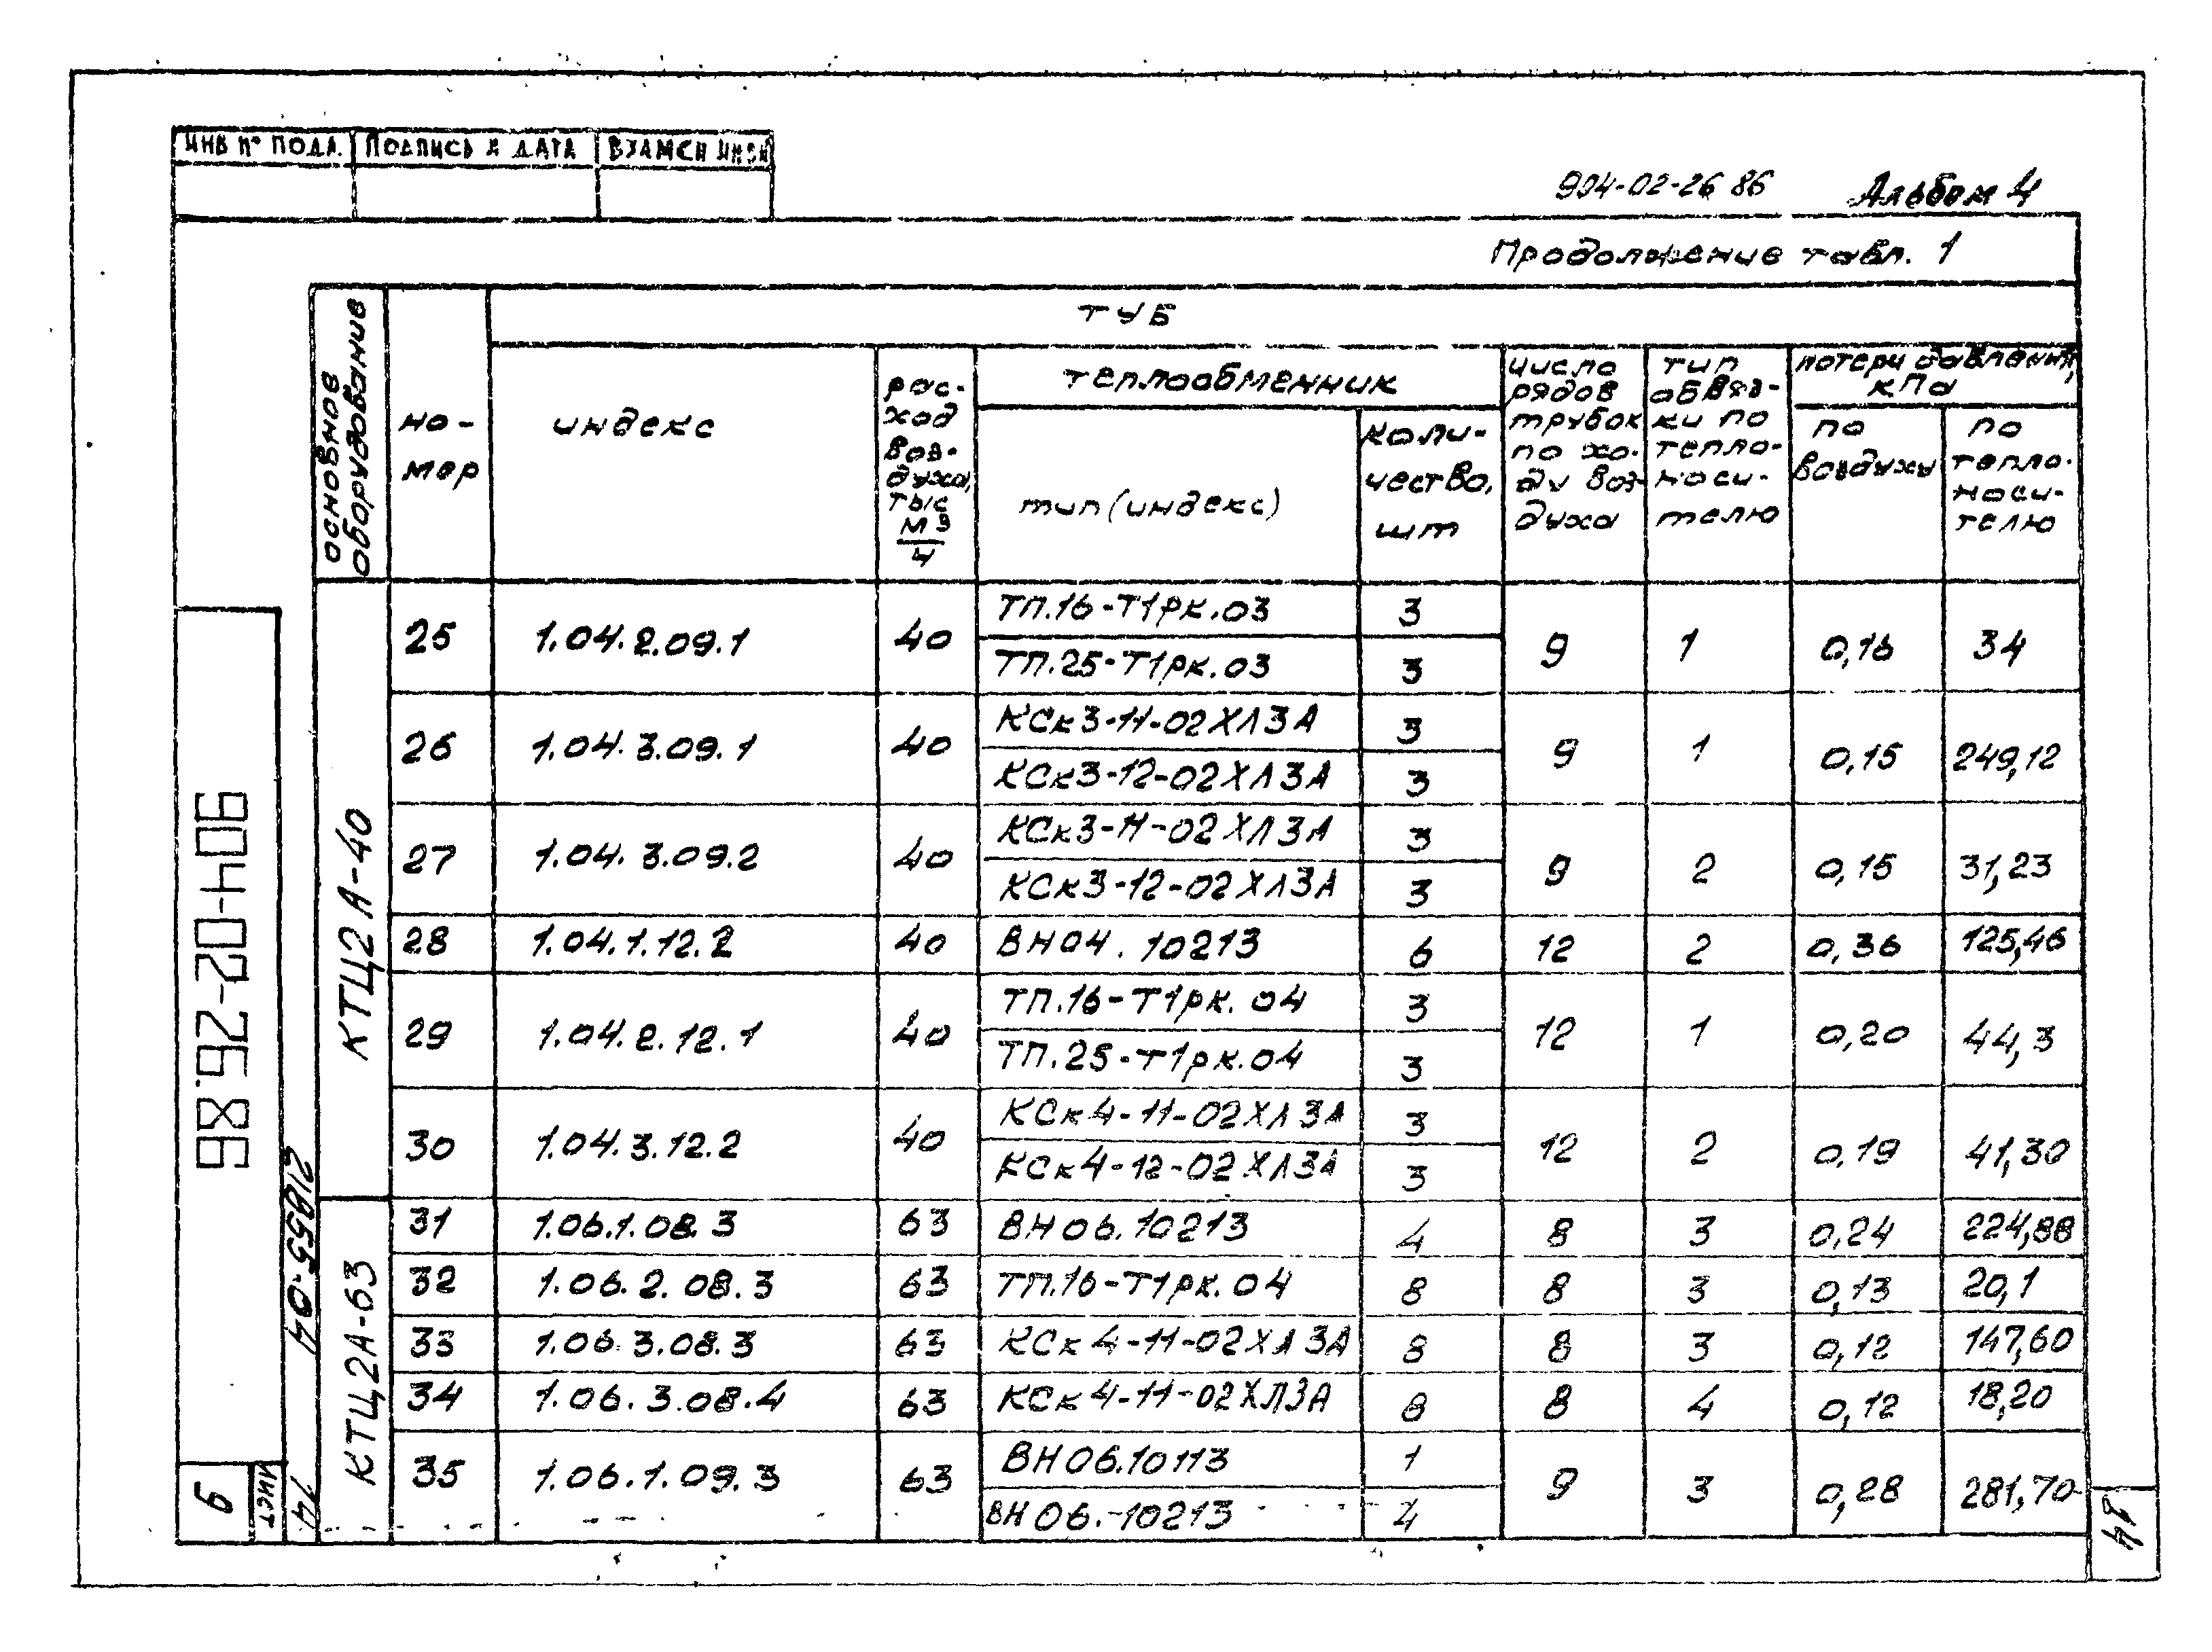 ИНВ № ПОДЛ. ПОДПИСЬ И ДАТА ВЗАМЕН ИНВ №
904-02-26 86 Альбом 4
Продолжение табл. 1
основное оборудование
но-
мер
ТУБ
индекс
рас-
ход
воз-
духа,
тыс
м3
ч
теплообменник
тип (индекс)
коли-
чество,
шт
число
рядов
трубок
по хо-
ду воз-
духа
тип
обвяз-
ки по
тепло-
носи-
телю
потери давления,
кПа
по
воздуху
по
тепло-
носи-
телю
КТЦ2А-40
25 1.04.2.09.1 40 ТП.16-Т1рк.03 3 9 1 0,16 34
ТП.25-Т1рк.03 3
26 1.04.3.09.1 40 КСк3-11-02ХЛ3А 3 9 1 0,15 249,12
КСк3-12-02ХЛ3А 3
27 1.04.3.09.2 40 КСк3-11-02ХЛ3А 3 9 2 0,15 31,23
КСк3-12-02ХЛ3А 3
28 1.04.1.12.2 40 ВН04.10213 6 12 2 0,36 125,46
29 1.04.2.12.1 40 ТП.16-Т1рк.04 3 12 1 0,20 44,3
ТП.25-Т1рк.04 3
30 1.04.3.12.2 40 КСк4-11-02ХЛ3А 3 12 2 0,19 41,30
КСк4-12-02ХЛ3А 3
КТЦ2А-63
31 1.06.1.08.3 63 ВН06.10213 4 8 3 0,24 224,88
32 1.06.2.08.3 63 ТП.16-Т1рк.04 8 8 3 0,13 20,1
33 1.06.3.08.3 63 КСк4-11-02ХЛ3А 8 8 3 0,12 147,60
34 1.06.3.08.4 63 КСк4-11-02ХЛ3А 8 8 4 0,12 18,20
35 1.06.1.09.3 63 ВН06.10113 1 9 3 0,28 281,70
ВН06.-10213 4
904-02-26.86
21855-04 14
ЛИСТ
9
14